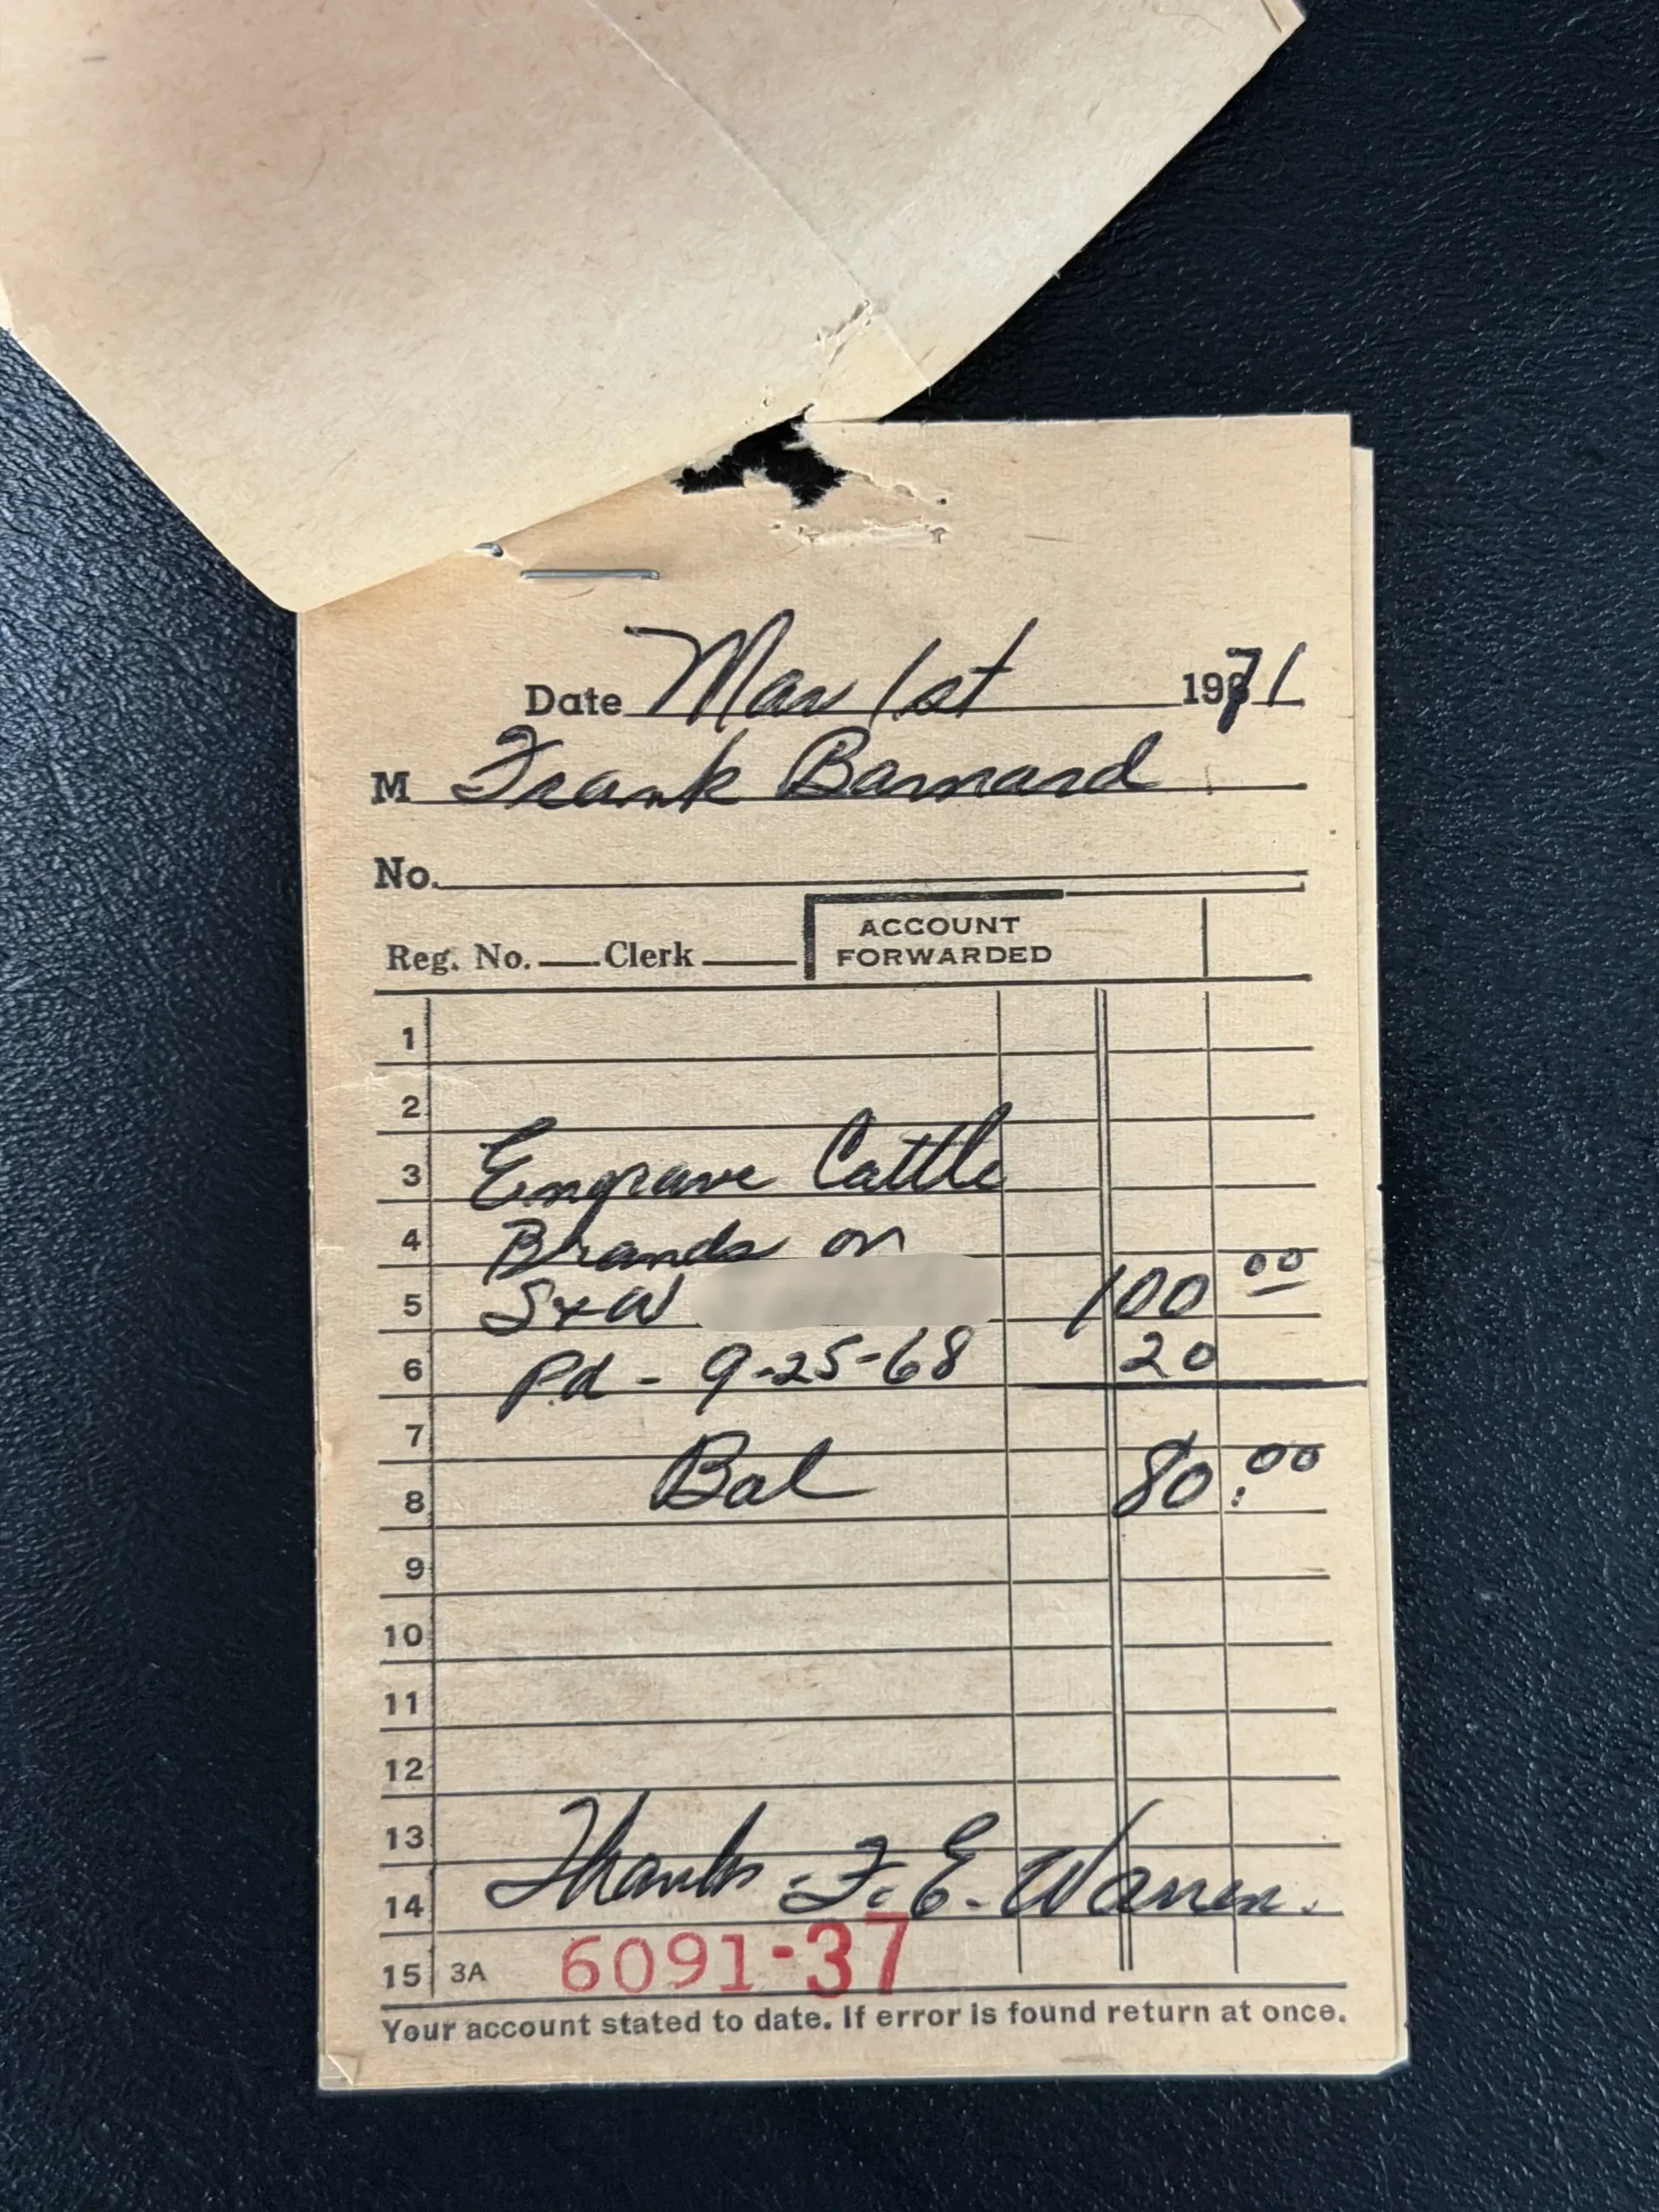 Date Mar 1st 1971
M Frank Barnard
No.
Reg. No. Clerk ACCOUNT FORWARDED
1
2
3 Engrave Cattle
4 Brands on
5 S+W 100 00
6 Pd - 9-25-68 20
7
8 Bal 80.00
9
10
11
12
13
14 Thanks - F. E. Warren.
15 3A 6091-37
Your account stated to date. If error is found return at once.